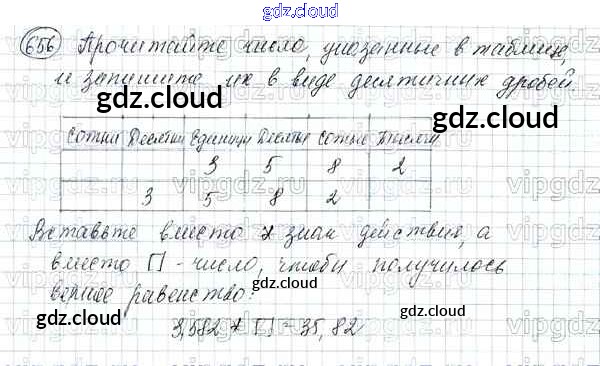 gdz.cloud
656 Прочитайте число, указанные в таблице,
и запишите их в виде десятичных дробей
gdz.cloud
gdz.cloud
gdz.cloud
Сотни Десятки Единицы Десятые Сотые Тысячн
3 5 8 2
3 5 8 2
Вставьте вместо * знак действия, а
вместо □ - число, чтобы получилось
верное равенство:
gdz.cloud
gdz.cloud
gdz.cloud
3,582 * □ = 35,82
gdz.cloud